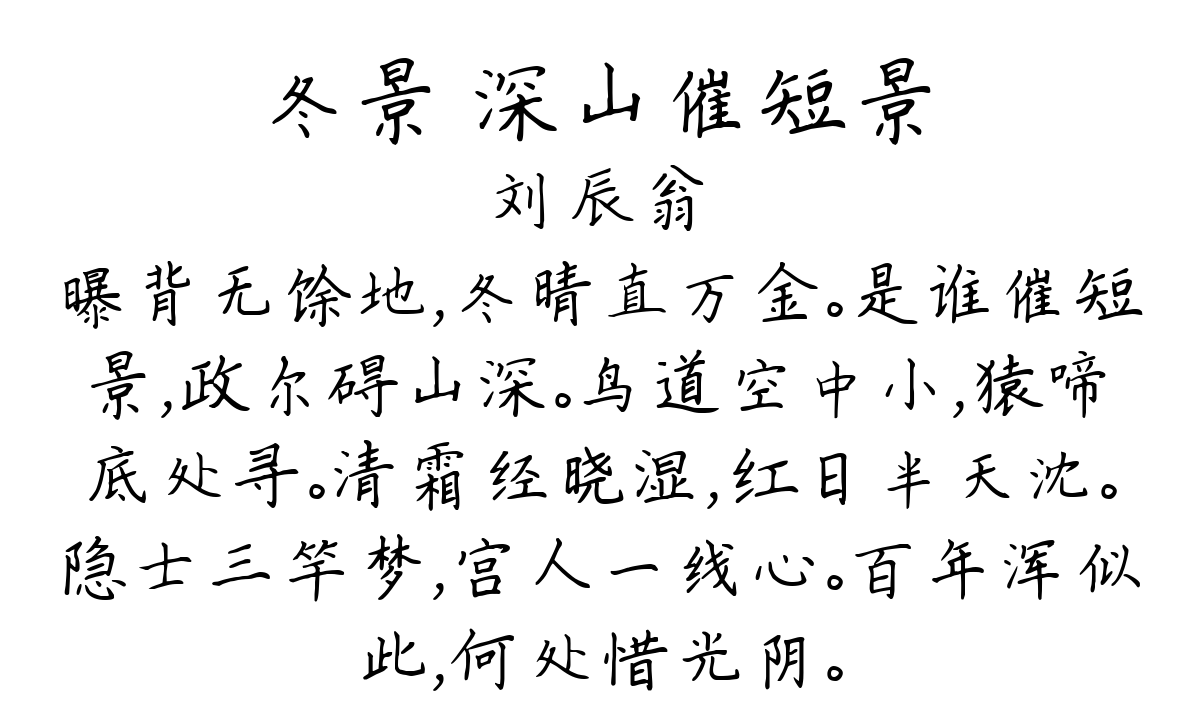 冬景 深山催短景
刘辰翁
曝背无馀地,冬晴直万金。是谁催短
景,政尔碍山深。鸟道空中小,猿啼
底处寻。清霜经晓湿,红日半天沈。
隐士三竿梦,宫人一线心。百年浑似
此,何处惜光阴。